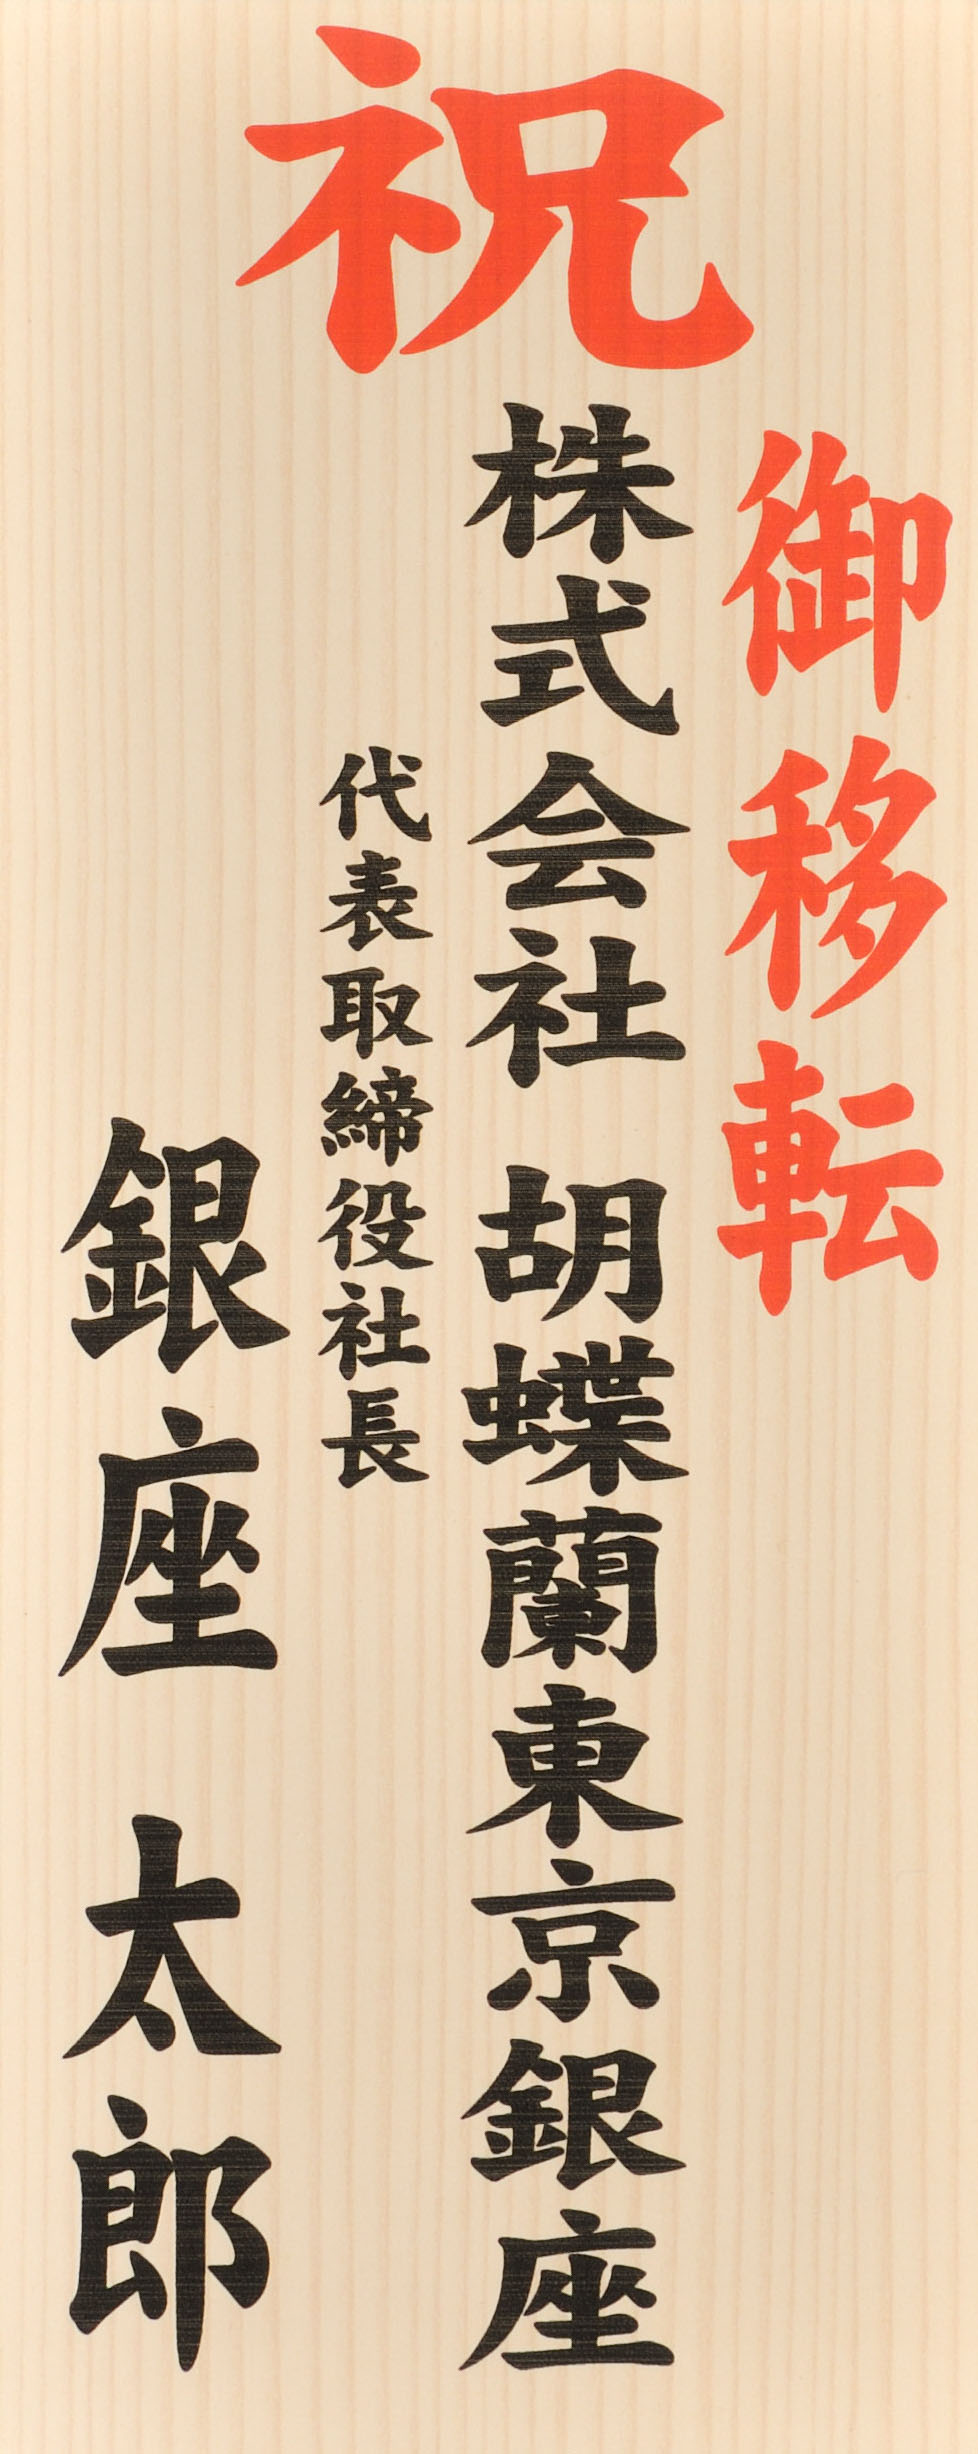 祝
御移転
株式会社 胡蝶蘭東京銀座
代表取締役社長
銀座 太郎